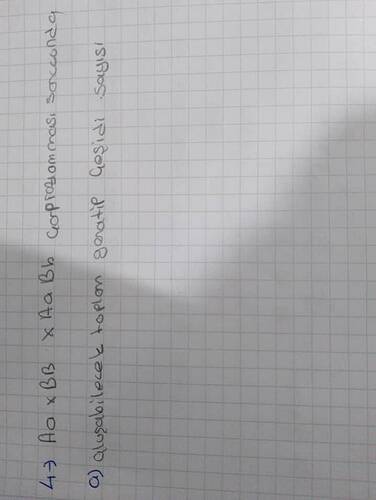 4-) Aa x BB x AaBb çaprazlanması sonucunda
a) oluşabilecek toplam genotip çeşidi sayısı